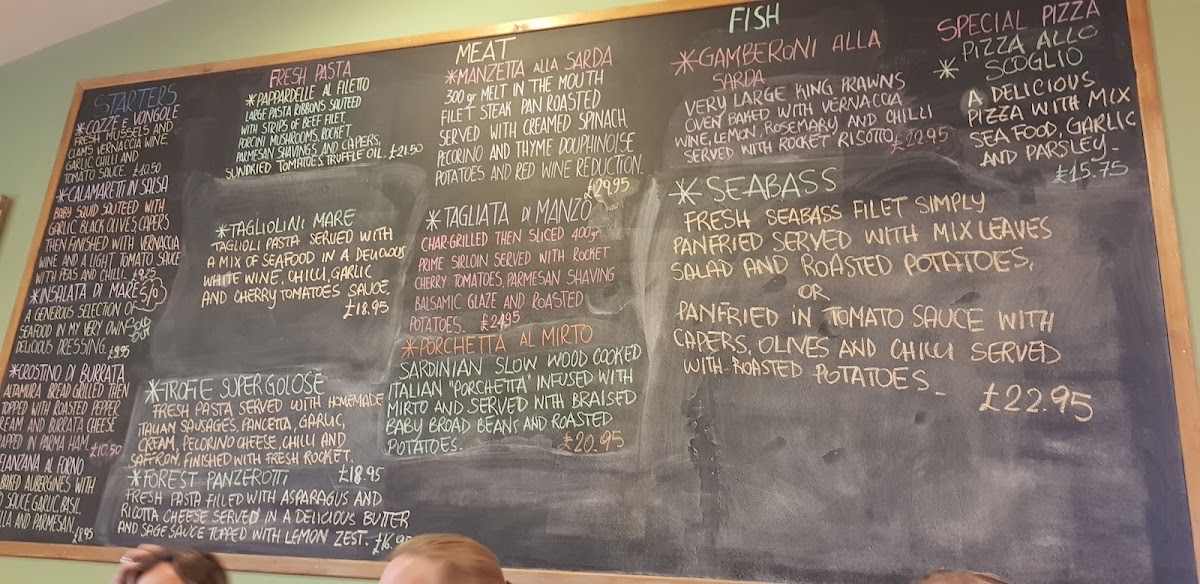 STARTERS
*COZZE E VONGOLE
FRESH MUSSELS AND
CLAMS VERNACCIA WINE
GARLIC CHILLI AND
TOMATO SAUCE. £10.50
*CALAMARETTI IN SALSA
BABY SQUID SAUTEED WITH
GARLIC BLACK OLIVES, CAPERS
THEN FINISHED WITH VERNACCIA
WINE AND A LIGHT TOMATO SAUCE
WITH PEAS AND CHILLI. £9.25
*INSALATA DI MARE S/O
A GENEROUS SELECTION OF
SEAFOOD IN MY VERY OWN
DELICIOUS DRESSING. £9.95
*CROSTINO DI BURRATA
ALTAMURA BREAD GRILLED THEN
TOPPED WITH ROASTED PEPPER
CREAM AND BURRATA CHEESE
WRAPPED IN PARMA HAM. £10.50
ELANZANA AL FORNO
BAKED AUBERGINES WITH
SAUCE, GARLIC, BASIL
LLA AND PARMESAN. £8.95
FRESH PASTA
*PAPPARDELLE AL FILETTO
LARGE PASTA RIBBONS SAUTEED
WITH STRIPS OF BEEF FILET,
PORCINI MUSHROOMS, ROCKET,
PARMESAN SHAVINGS, AND CAPERS,
SUNDRIED TOMATOES, TRUFFLE OIL. £21.50
*TAGLIOLINI MARE
TAGLIOLI PASTA SERVED WITH
A MIX OF SEAFOOD IN A DELICIOUS
WHITE WINE, CHILLI, GARLIC
AND CHERRY TOMATOES SAUCE.
£18.95
*TROFIE SUPER GOLOSE
FRESH PASTA SERVED WITH HOMEMADE
ITALIAN SAUSAGES, PANCETTA, GARLIC,
CREAM, PECORINO CHEESE, CHILLI AND
SAFFRON, FINISHED WITH FRESH ROCKET.
£18.95
*FOREST PANZEROTTI
FRESH PASTA FILLED WITH ASPARAGUS AND
RICOTTA CHEESE SERVED IN A DELICIOUS BUTTER
AND SAGE SAUCE TOPPED WITH LEMON ZEST. £16.95
MEAT
*MANZETTA ALLA SARDA
300 gr MELT IN THE MOUTH
FILET STEAK PAN ROASTED
SERVED WITH CREAMED SPINACH
PECORINO AND THYME DOUPHINOISE
POTATOES AND RED WINE REDUCTION.
£29.95
*TAGLIATA DI MANZO
CHAR-GRILLED THEN SLICED 400gr
PRIME SIRLOIN SERVED WITH ROCKET
CHERRY TOMATOES, PARMESAN SHAVING
BALSAMIC GLAZE AND ROASTED
POTATOES. £24.95
*PORCHETTA AL MIRTO
SARDINIAN SLOW WOOD COOKED
ITALIAN "PORCHETTA" INFUSED WITH
MIRTO AND SERVED WITH BRAISED
BABY BROAD BEANS AND ROASTED
POTATOES. £20.95
FISH
*GAMBERONI ALLA
SARDA
VERY LARGE KING PRAWNS
OVEN BAKED WITH VERNACCIA
WINE, LEMON, ROSEMARY AND CHILLI
SERVED WITH ROCKET RISOTTO. £22.95
*SEABASS
FRESH SEABASS FILET SIMPLY
PANFRIED SERVED WITH MIX LEAVES
SALAD AND ROASTED POTATOES.
OR
PANFRIED IN TOMATO SAUCE WITH
CAPERS, OLIVES AND CHILLI SERVED
WITH ROASTED POTATOES.
£22.95
SPECIAL PIZZA
*PIZZA ALLO
SCOGLIO
A DELICIOUS
PIZZA WITH MIX
SEA FOOD, GARLIC
AND PARSLEY.
£15.75